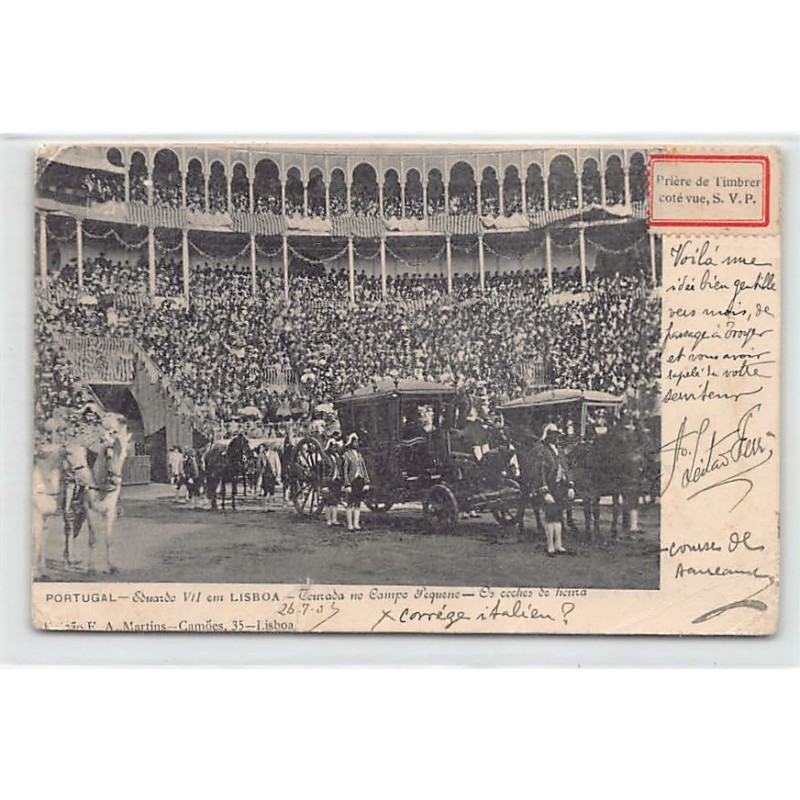 Prière de Timbrer
coté vue, S. V. P.
Voilá une
idée bien gentille
vers mois, de
passage à Troyer
et vous avoir
rapelé du votte
serviteur
courses de
Taureaux
PORTUGAL — Eduardo VII em LISBOA — Tourada no Campo Pequeno — Os coches de honra
26-7-05
x corrége italien?
F. A. Martins — Camões, 35 — Lisboa